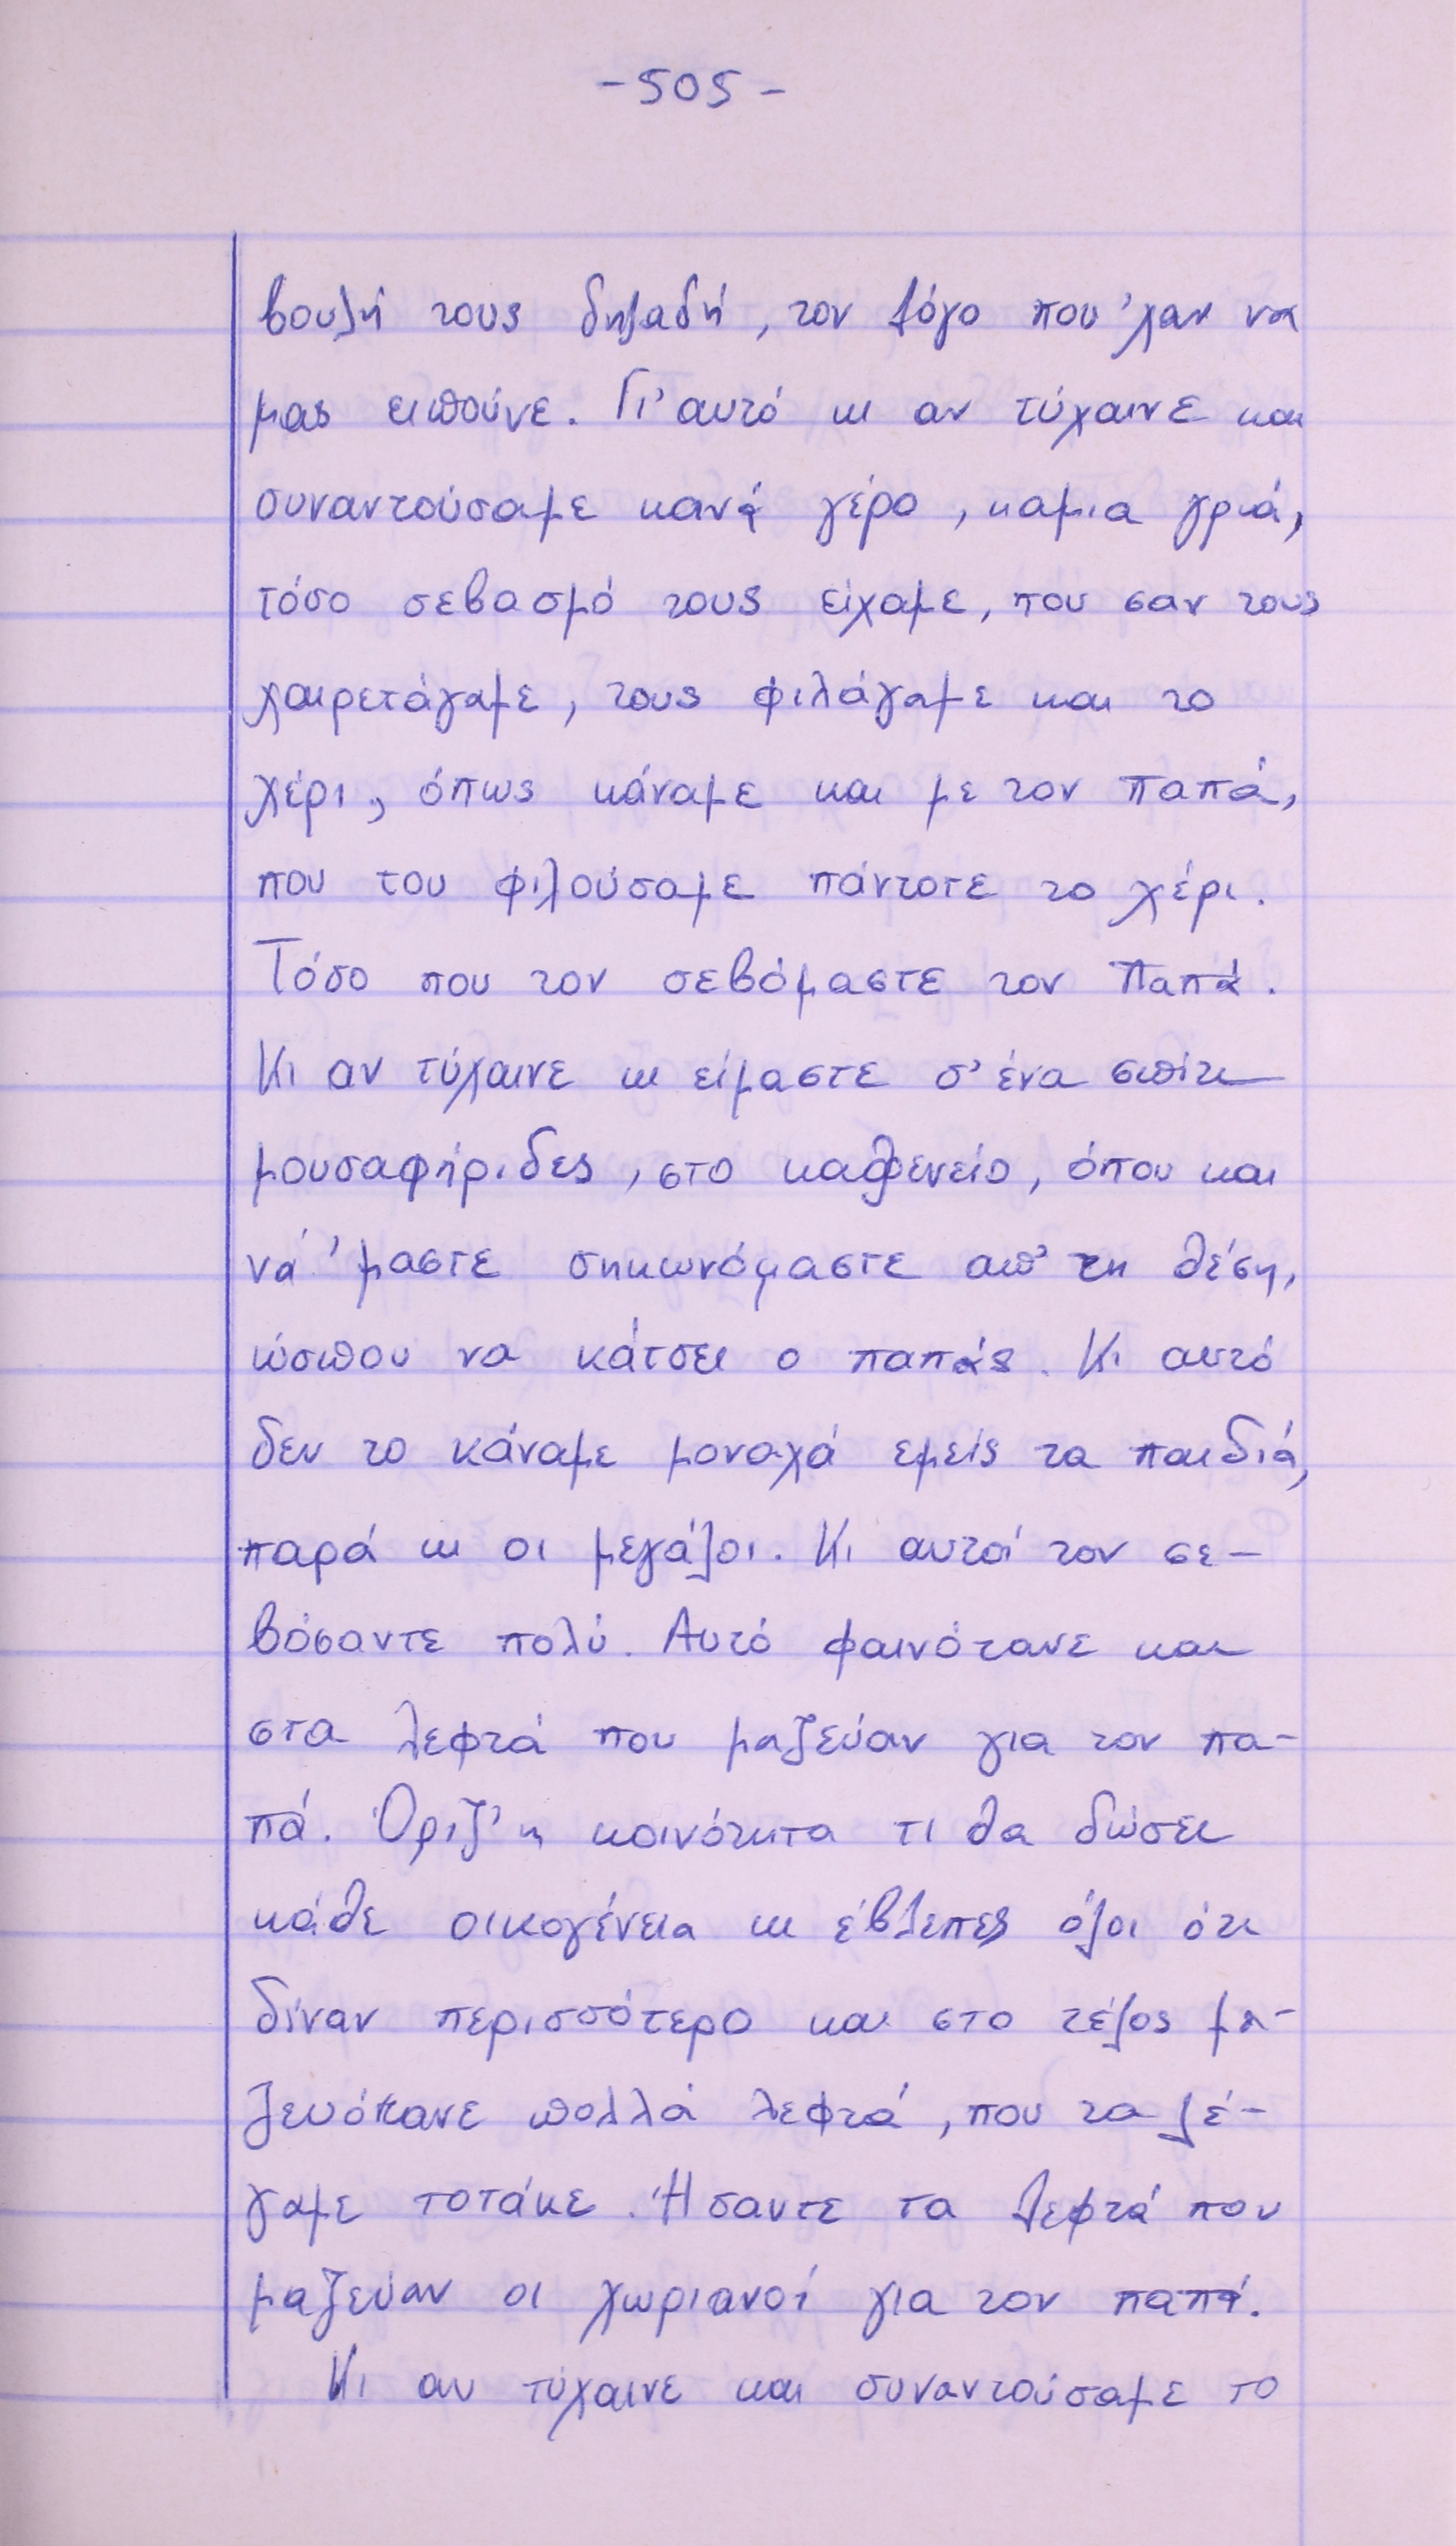 -505-
βουλή τους δηλαδή, τον λόγο που 'χαν να
μας ειπούνε. Γι' αυτό κι αν τύχαινε και
συναντούσαμε κανά γέρο, καμια γριά,
τόσο σεβασμό τους είχαμε, που σαν τους
χαιρετάγαμε, τους φιλάγαμε και το
χέρι, όπως κάναμε και με τον παπά,
που του φιλούσαμε πάντοτε το χέρι.
Τόσο που τον σεβόμαστε τον Παπά.
Κι αν τύχαινε κι είμαστε σ' ένα σπίτι
μουσαφήριδες, στο καφενείο, όπου και
νά 'μαστε σηκωνόμαστε απ' τη θέση,
ώσπου να κάτσει ο παπάς. Κι αυτό
δεν το κάναμε μοναχά εμείς τα παιδιά,
παρά κι οι μεγάλοι. Κι αυτοί τον σε-
βόσαντε πολύ. Αυτό φαινότανε και
στα λεφτά που μαζεύαν για τον πα-
πά. Όριζ' η κοινότητα τι θα δώσει
κάθε οικογένεια κι έβλεπες όλοι ότι
δίναν περισσότερο και στο τέλος μα-
ζευότανε πολλά λεφτά, που τα λέ-
γαμε τοτάκε. Ήσαντε τα λεφτά που
μαζεύαν οι χωριανοί για τον παπά.
Κι αν τύχαινε και συναντούσαμε το